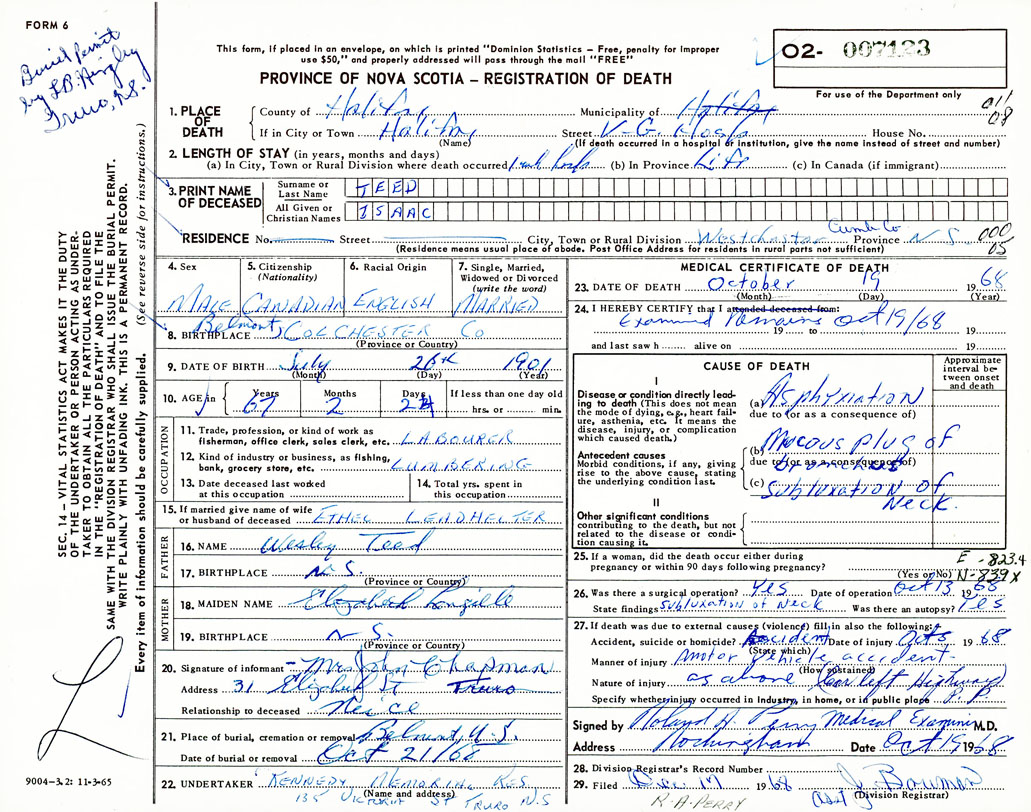 FORM 6
Burial Permit
by
Truro, N.S.
This form, if placed in an envelope, on which is printed "Dominion Statistics – Free, penalty for improper
use $50," and properly addressed will pass through the mail "FREE"
PROVINCE OF NOVA SCOTIA – REGISTRATION OF DEATH
O2- 007123
For use of the Department only
011
08
1. PLACE OF DEATH
County of Halifax Municipality of Halifax
If in City or Town Halifax Street V-G. Hosp House No.
(Name) (If death occurred in a hospital or institution, give the name instead of street and number)
2. LENGTH OF STAY (in years, months and days)
(a) In City, Town or Rural Division where death occurred (b) In Province Life (c) In Canada (if immigrant)
3. PRINT NAME OF DECEASED
Surname or Last Name TEED
All Given or Christian Names ISAAC
Cumb Co
RESIDENCE No. Street City, Town or Rural Division Westchester Province N S
000
05
(Residence means usual place of abode. Post Office Address for residents in rural parts not sufficient)
4. Sex MALE
5. Citizenship (Nationality) CANADIAN
6. Racial Origin ENGLISH
7. Single, Married, Widowed or Divorced (write the word) MARRIED
8. BIRTHPLACE Belmont, COLCHESTER Co
(Province or Country)
9. DATE OF BIRTH July 26th 1901
(Month) (Day) (Year)
10. AGE in Years 67 Months 2 Days If less than one day old hrs. or min.
OCCUPATION
11. Trade, profession, or kind of work as fisherman, office clerk, sales clerk, etc. LABOURER
12. Kind of industry or business, as fishing, bank, grocery store, etc. LUMBERING
13. Date deceased last worked at this occupation
14. Total yrs. spent in this occupation
15. If married give name of wife or husband of deceased ETHEL LEADHELTER
FATHER
16. NAME Wesley Teed
17. BIRTHPLACE N S.
(Province or Country)
MOTHER
18. MAIDEN NAME Elizabeth
19. BIRTHPLACE N S.
(Province or Country)
20. Signature of informant – Mrs John Chapman
Address 31 Elizabeth St Truro
Relationship to deceased Neice
21. Place of burial, cremation or removal Belmont, N.S.
Date of burial or removal Oct 21/68
22. UNDERTAKER KENNEDY MEMORIAL RES
(Name and address)
135 VICTORIA ST TRURO N.S
MEDICAL CERTIFICATE OF DEATH
23. DATE OF DEATH October 19 1968
(Month) (Day) (Year)
24. I HEREBY CERTIFY that I attended deceased from:
Examined Remains Oct 19/68
19 to 19
and last saw h alive on 19
CAUSE OF DEATH
Approximate interval between onset and death
I
Disease or condition directly leading to death (This does not mean the mode of dying, e.g., heart failure, asthenia, etc. It means the disease, injury, or complication which caused death.)
(a) Asphyxiation
due to (or as a consequence of)
Antecedent causes
Morbid conditions, if any, giving rise to the above cause, stating the underlying condition last.
(b) Mucous plug of
due to (or as a consequence of)
(c) Subluxation of Neck.
II
Other significant conditions contributing to the death, but not related to the disease or condition causing it.
25. If a woman, did the death occur either during pregnancy or within 90 days following pregnancy?
(Yes or No)
E - 823.4
N-839x
26. Was there a surgical operation? Yes Date of operation Oct 13 1968
State findings Subluxation of Neck Was there an autopsy? Yes
27. If death was due to external causes (violence) fill in also the following:
Accident, suicide or homicide? Accident Date of injury Oct 5 1968
(State which)
Manner of injury motor vehicle accident
(How sustained)
Nature of injury as above Car left Highway
Specify whether injury occurred in industry, in home, or in public place P. P.
Signed by Roland A. Perry Medical Examiner M.D.
Address Rockingham Date Oct 19 1968
28. Division Registrar's Record Number
29. Filed 1968 J. Bowman
(Division Registrar)
R. A. PERRY
SEC. 14 – VITAL STATISTICS ACT MAKES IT THE DUTY
OF THE UNDERTAKER OR PERSON ACTING AS UNDER-
TAKER TO OBTAIN ALL THE PARTICULARS REQUIRED
IN THE "REGISTRATION OF DEATH" AND TO FILE THE
SAME WITH THE DIVISION REGISTRAR WHO SHALL ISSUE THE BURIAL PERMIT.
WRITE PLAINLY WITH UNFADING INK. THIS IS A PERMANENT RECORD.
Every item of information should be carefully supplied. (See reverse side for instructions.)
9004-3.2: 11-3-65